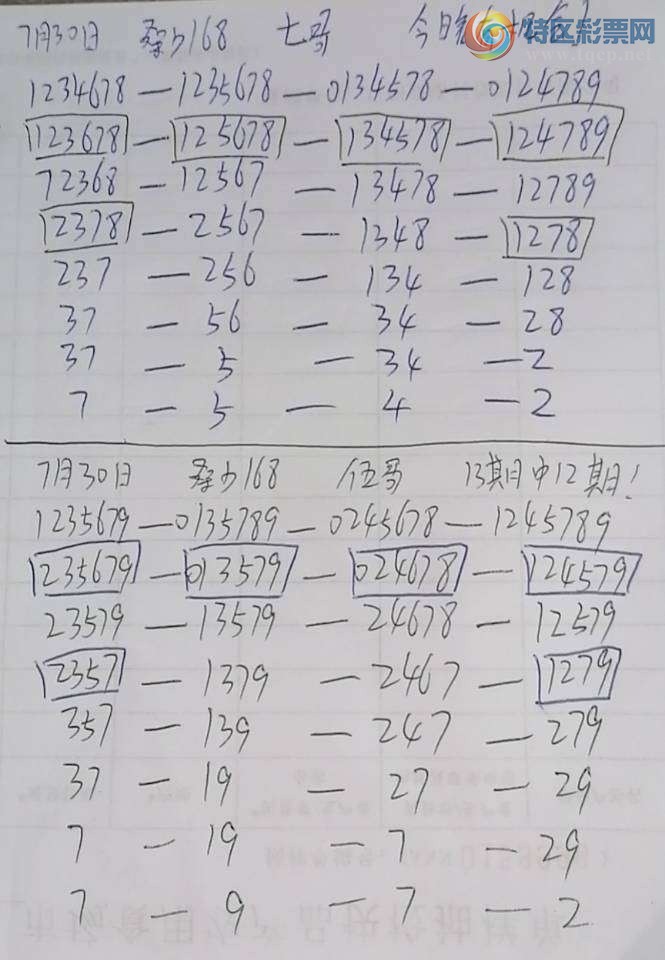 7月30日 桑少168 七哥 今日
特区彩票网
www.tqcp.net
1234678 — 1235678 — 0134578 — 0124789
123678 — 125678 — 134578 — 124789
12368 — 12567 — 13478 — 12789
2378 — 2567 — 1348 — 1278
237 — 256 — 134 — 128
37 — 56 — 34 — 28
37 — 5 — 34 — 2
7 — 5 — 4 — 2
7月30日 桑少168 伍哥 13期中12期!
1235679 — 0135789 — 0245678 — 1245789
1235679 — 013579 — 024678 — 124579
23579 — 13579 — 24678 — 12579
2357 — 1379 — 2467 — 1279
357 — 139 — 247 — 279
37 — 19 — 27 — 29
7 — 19 — 7 — 29
7 — 9 — 7 — 2